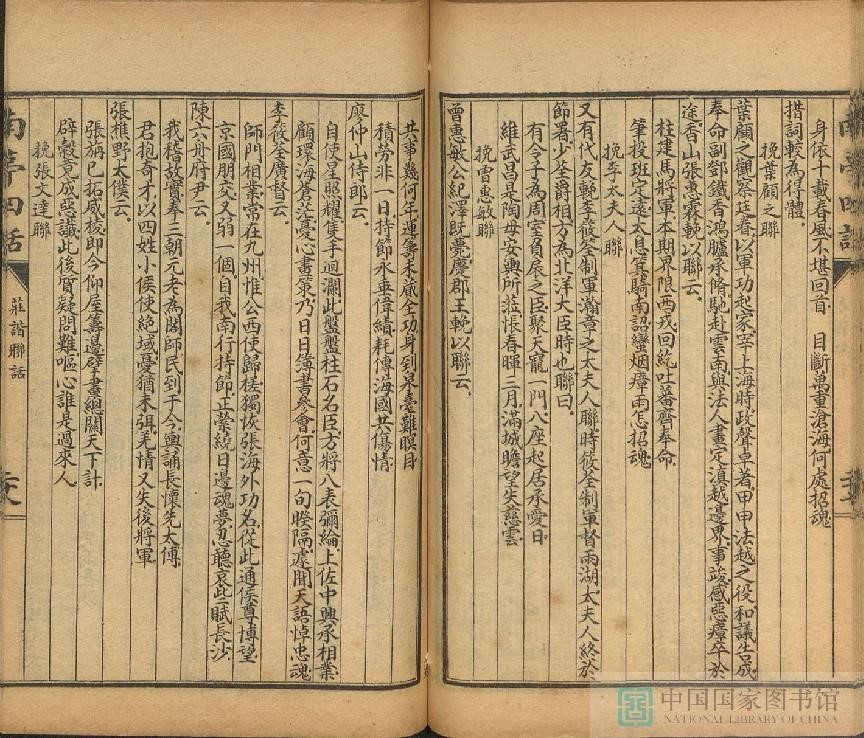 身依十載春風不堪回首 目斷萬重滄海何處招魂
措詞較為得體
輓葉顧之聯
葉顧之觀察廷眷以軍功起家宰上海時政聲卓著甲申法越之役和議告成
奉命副鄧鐵香鴻臚承脩馳赴雲南與法人畫定滇越邊界事竣感惡瘴卒於
途香山張惠霖輓以聯云
柱建馬將軍本期界限西戎回紇吐蕃齊奉命
筆投班定遠太息箕騎南詔蠻烟瘴雨怎招魂
輓李太夫人聯
又有代友輓李筱荃制軍瀚章之太夫人聯時筱荃制軍督兩湖太夫人終於
節署少荃爵相方為北洋大臣時也聯曰
有令子為周室負扆之臣聚天寵一門八座起居承愛日
維武昌是陶母安輿所蒞悵春暉三月滿城瞻望失慈雲
輓曾惠敏聯
曾惠敏公紀澤既薨慶郡王輓以聯云
共事幾何年運籌未蕆全功身到泉臺難瞑目
積勞非一日持節永垂偉績耗傳海國共傷情
廖仲山侍郎云
自使星照耀隻手迴瀾此盤盤柱石名臣方將八表彌綸上佐中興承相業
顧環海蒼茫憂心書策乃日日簿書參會何意一旬暌隔遽聞天語悼忠魂
李筱荃廣督云
師門相業常在九州惟公西使歸槎獨恢張海外功名從此通侯尊博望
京國朋交又弱一個自我南行持節正縈繞日邊魂夢忽聽哀些賦長沙
陳六舟府尹云
我稽故實奉三朝元老為閣師民到于今輿誦長懷先太傅
君抱奇才以四姓小侯使絕域憂猶未弭羌情又失後將軍
張樵野太僕云
張旃已拓威稜即今仰屋籌邊擘畫總關天下計
辟穀竟成惡讖此後質疑問難嘔心誰是過來人
輓張文達聯
南亭四話
莊諧聯話
中国国家图书馆
NATIONAL LIBRARY OF CHINA